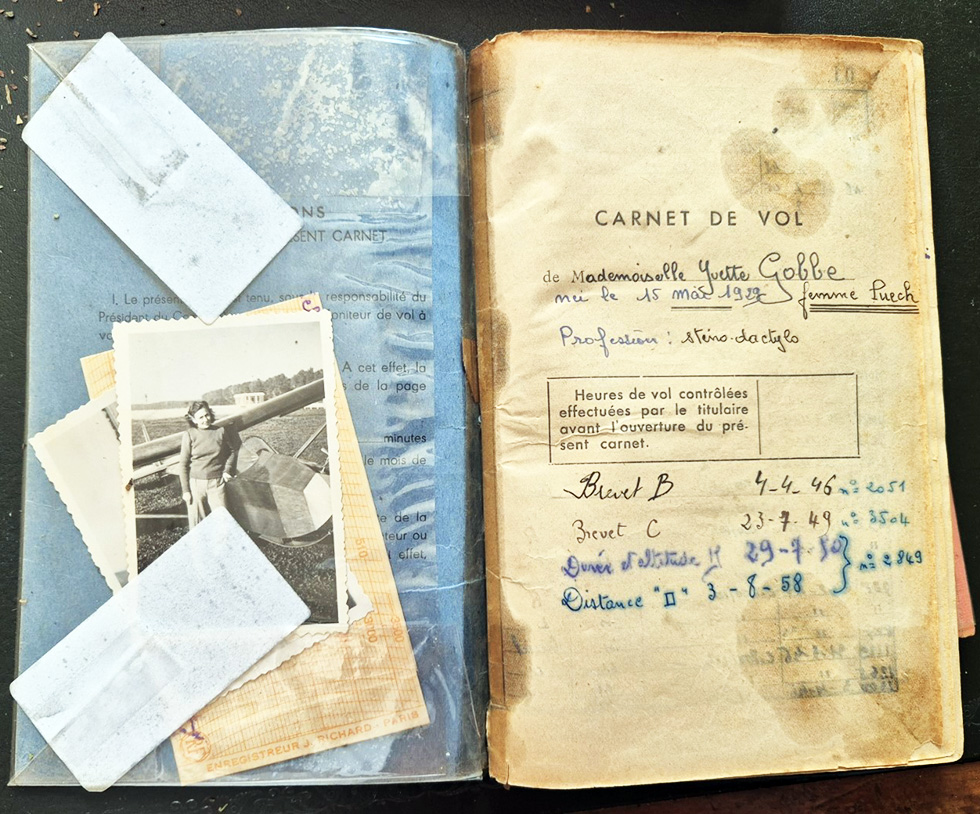 ONS
SENT CARNET
I. Le présen tenu, sous responsabilité du
Président du moniteur de vol à
A cet effet, la
s de la page
minutes
le mois de
te de la
teur ou
effet,
ENREGISTREUR J. RICHARD - PARIS
CARNET DE VOL
de Mademoiselle Yvette Gobbe
née le 15 mai 1929 femme Puech
Profession : sténo-dactylo
Heures de vol contrôlées
effectuées par le titulaire
avant l'ouverture du pré-
sent carnet.
Brevet B 4-4-46 n° 2051
Brevet C 23-7-49 n° 3504
Durée et altitude 29-7-50
n° 2849
Distance "D" 3-8-58